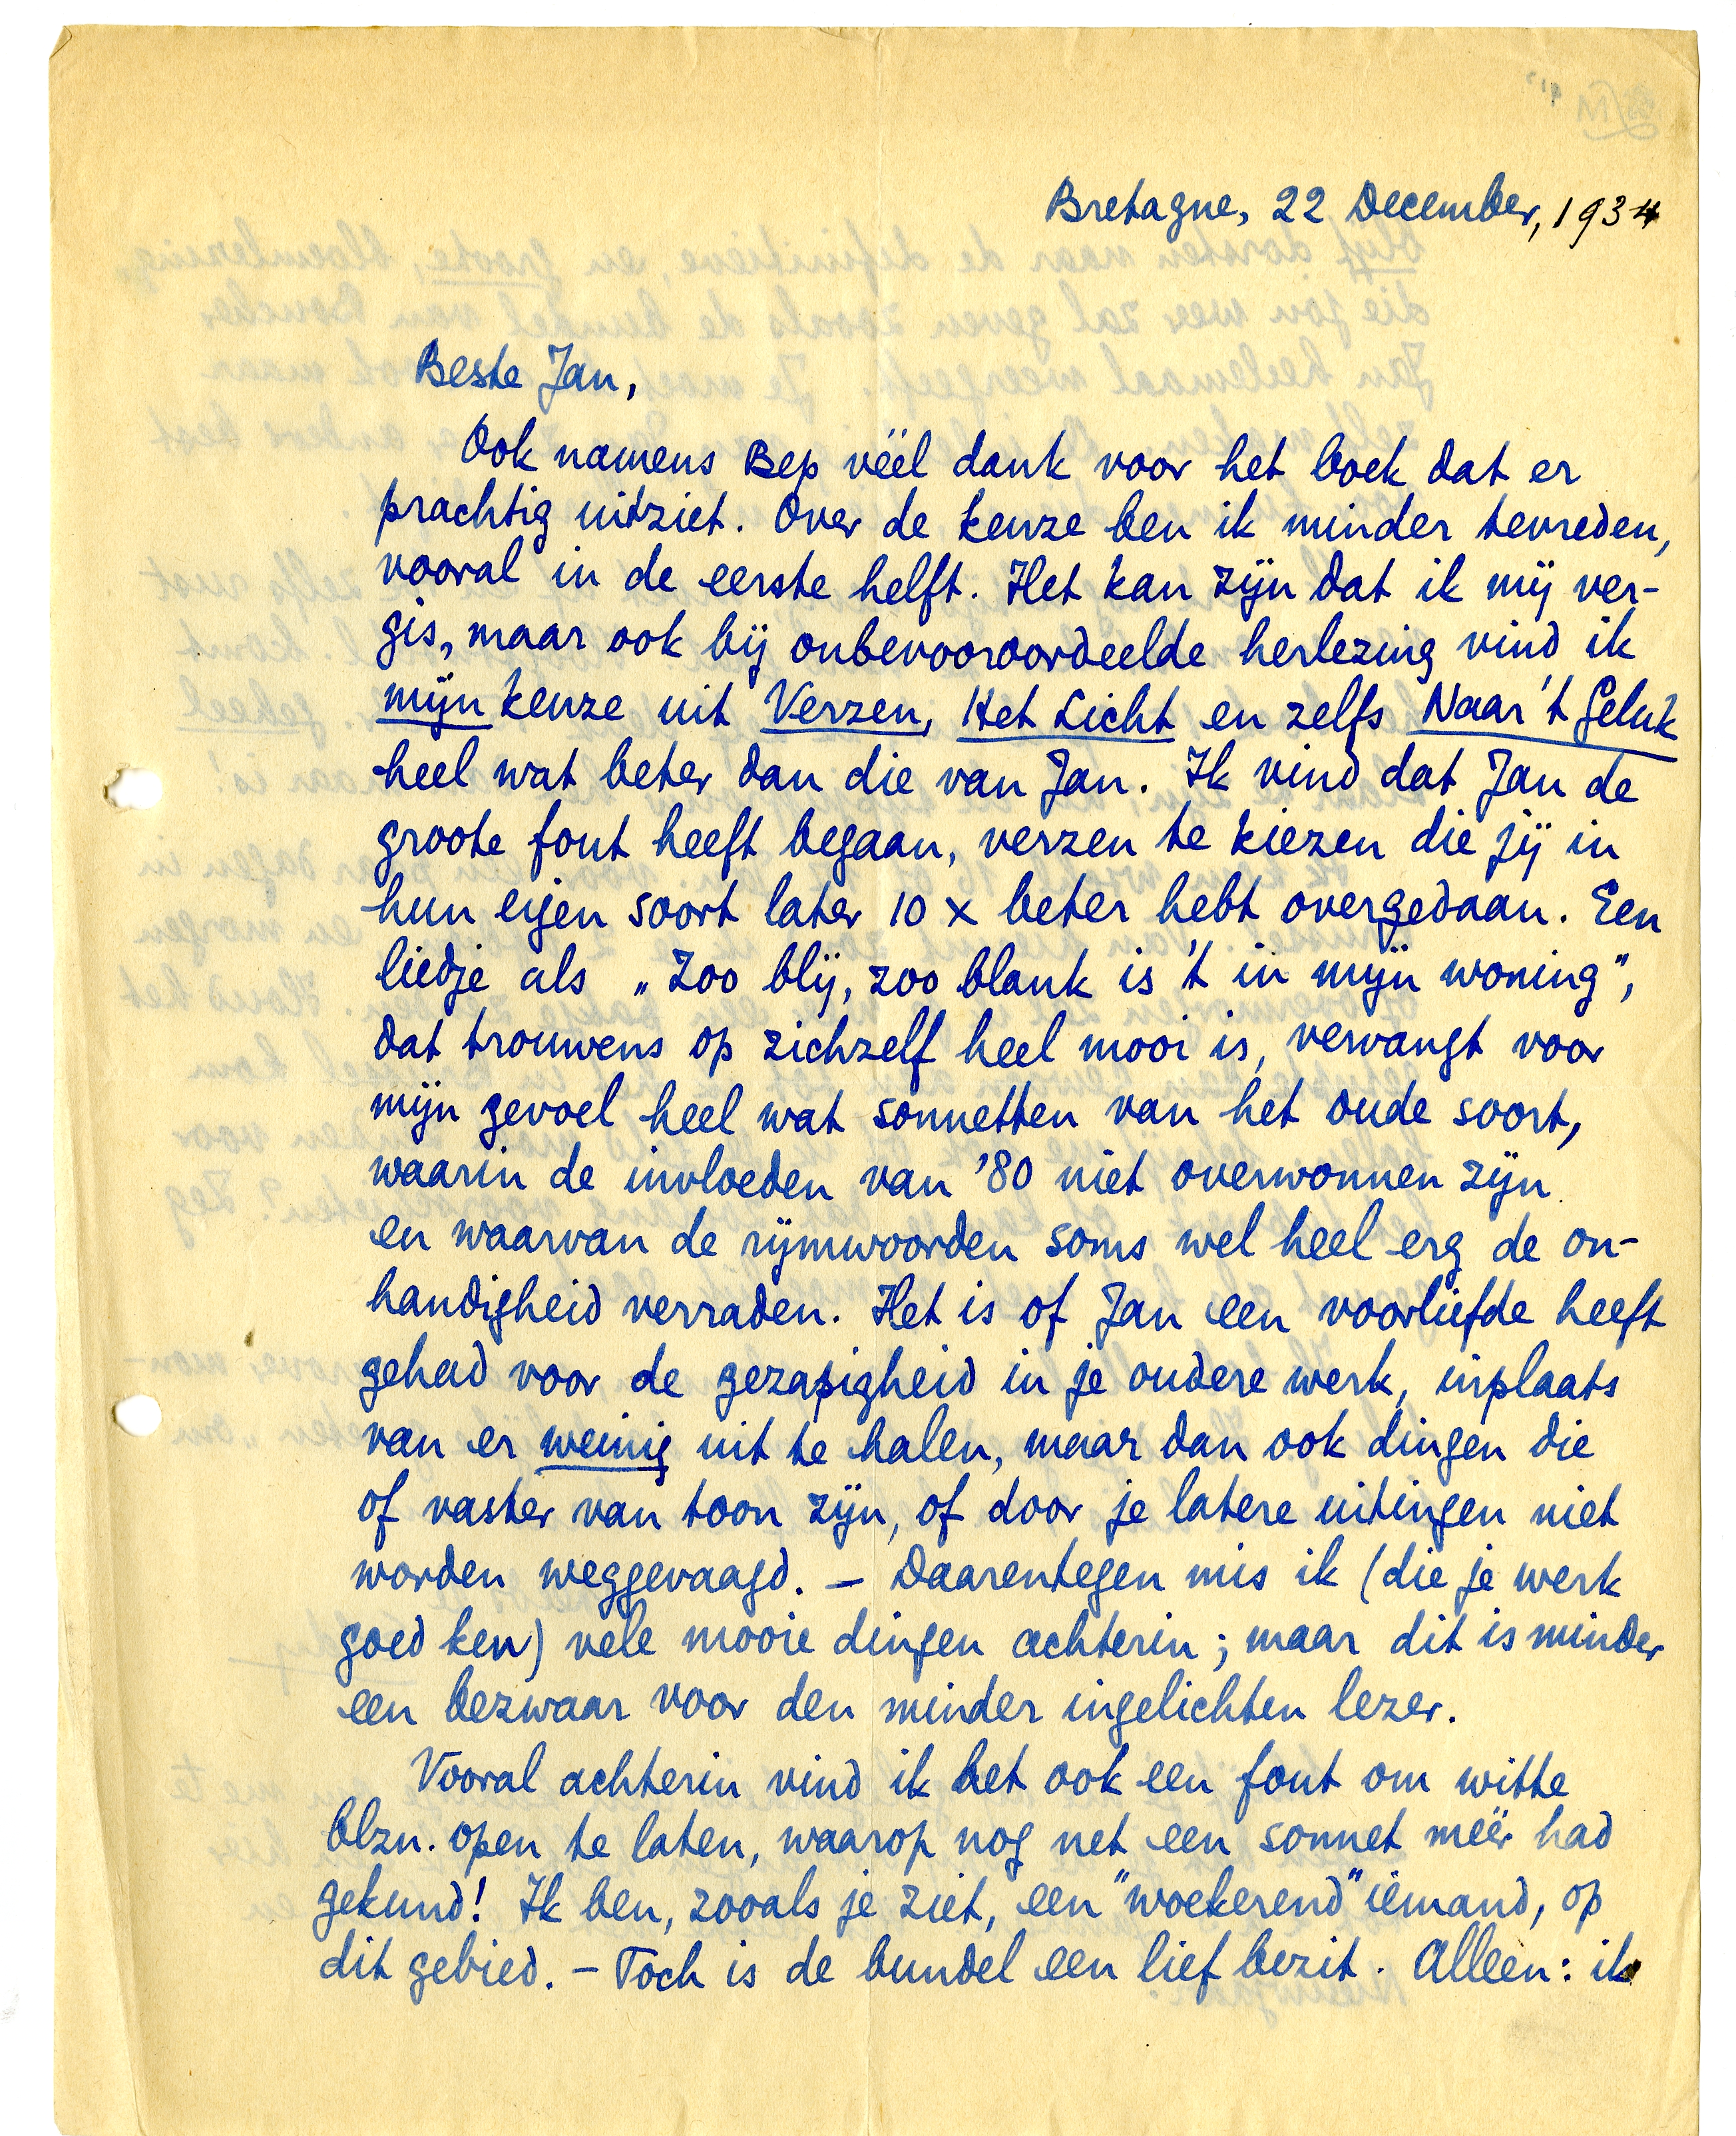 Bretagne, 22 December, 1934
Beste Jan,
Ook namens Bep véél dank voor het boek dat er
prachtig uitziet. Over de keuze ben ik minder tevreden,
vooral in de eerste helft. Het kan zijn dat ik mij ver-
gis, maar ook bij onbevooroordeelde herlezing vind ik
mijn keuze uit Verzen, Het Licht en zelfs Naar 't Geluk
heel wat beter dan die van Jan. Ik vind dat Jan de
groote fout heeft begaan, verzen te kiezen die jij in
hun eigen soort later 10 x beter hebt overgedaan. Een
liedje als „Zoo blij, zoo blank is 't in mijn woning",
dat trouwens op zichzelf heel mooi is, vervangt voor
mijn gevoel heel wat sonnetten van het oude soort,
waarin de invloeden van '80 niet overwonnen zijn
en waarvan de rijmwoorden soms wel heel erg de on-
handigheid verraden. Het is of Jan een voorliefde heeft
gehad voor de gezapigheid in je oudere werk, inplaats
van er weinig uit te halen, maar dan ook dingen die
of vaster van toon zijn, of door je latere uitingen niet
worden weggevaagd. – Daarentegen mis ik (die je werk
goed ken) vele mooie dingen achterin; maar dit is minder
een bezwaar voor den minder ingelichten lezer.
Vooral achterin vind ik het ook een fout om witte
blzn. open te laten, waarop nog net een sonnet méér had
gekund! Ik ben, zooals je ziet, een "woekerend" iemand, op
dit gebied. – Toch is de bundel een lief bezit. Alleen: ik